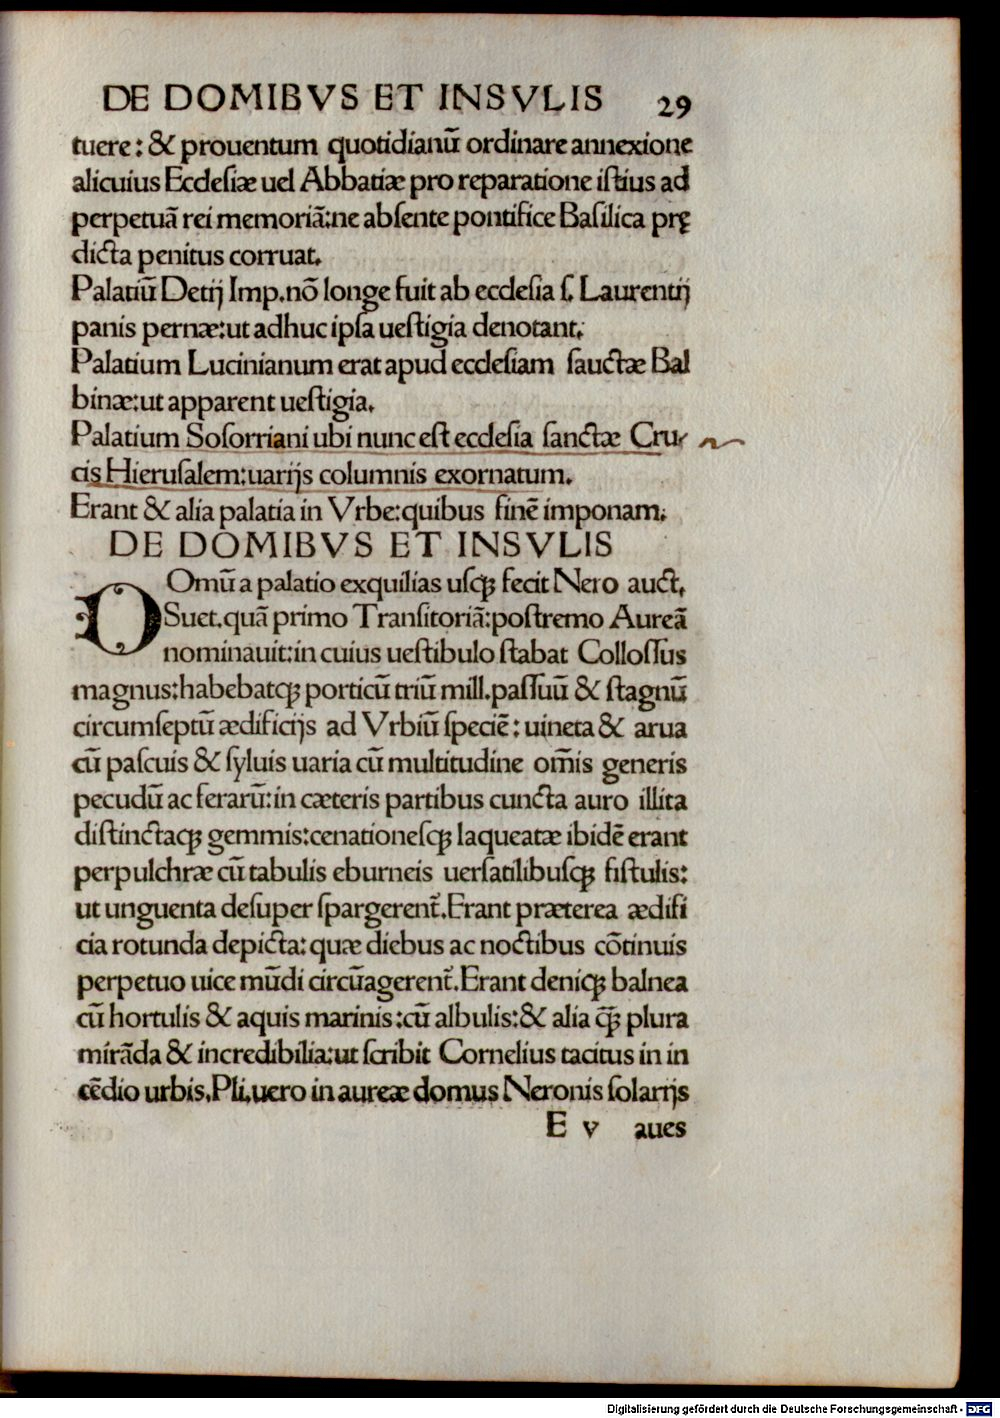 DE DOMIBVS ET INSVLIS 29
tuere: & prouentum quotidianū ordinare annexione
alicuius Ecclesiæ uel Abbatiæ pro reparatione iſtius ad
perpetuā rei memoriā:ne abſente pontifice Baſilica prę
dicta penitus corruat.
Palatiū Detij Imp.nō longe fuit ab eccleſia ſ. Laurentij
panis pernæ:ut adhuc ipſa ueſtigia denotant.
Palatium Lucinianum erat apud eccleſiam ſauctæ Bal
binæ:ut apparent ueſtigia.
Palatium Soſorriani ubi nunc eſt eccleſia ſanctæ Cru-
cis Hieruſalem:uarijs columnis exornatum.
Erant & alia palatia in Vrbe:quibus finē imponam.
DE DOMIBVS ET INSVLIS
DOmū a palatio exquilias uſqꝫ fecit Nero auct.
Suet.quā primo Tranſitoriā:poſtremo Aureā
nominauit:in cuius ueſtibulo ſtabat Colloſſus
magnus:habebatqꝫ porticū triū mill.paſſuū & ſtagnū
circumſeptū ædificijs ad Vrbiū ſpeciē: uineta & arua
cū paſcuis & ſyluis uaria cū multitudine om̄is generis
pecudū ac ferarū:in cæteris partibus cuncta auro illita
diſtinctaqꝫ gemmis:cenationeſqꝫ laqueatæ ibidē erant
perpulchræ cū tabulis eburneis uerſatilibuſqꝫ fiſtulis:
ut unguenta deſuper ſpargerent̄.Erant præterea ædifi
cia rotunda depicta:quæ diebus ac noctibus cōtinuis
perpetuo uice mūdi circūagerent̄.Erant deniqꝫ balnea
cū hortulis & aquis marinis:cū albulis:& alia q̄ꝫ plura
mirāda & incredibilia:ut ſcribit Cornelius tacitus in in
cēdio urbis.Pli.uero in aureæ domus Neronis ſolarijs
E v aues
Digitalisierung gefördert durch die Deutsche Forschungsgemeinschaft - DFG